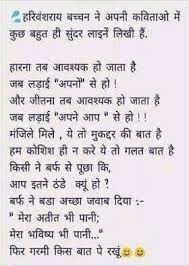 💦हरिवंशराय बच्चन ने अपनी कविताओ में
कुछ बहुत ही सुंदर लाइनें लिखी हैं.
हारना तब आवश्यक हो जाता है
जब लड़ाई "अपनों" से हो !
और जीतना तब आवश्यक हो जाता है
जब लड़ाई "अपने आप " से हो ! !
मंजिले मिले , ये तो मुकद्दर की बात है
हम कोशिश ही न करे ये तो गलत बात है
किसी ने बर्फ से पूछा कि,
आप इतने ठंडे क्यूं हो ?
बर्फ ने बडा अच्छा जवाब दिया :-
" मेरा अतीत भी पानी;
मेरा भविष्य भी पानी..."
फिर गरमी किस बात पे रखूं😊😊